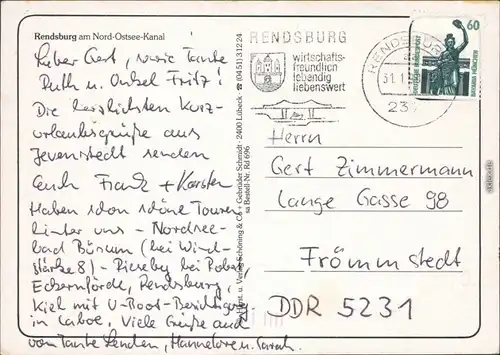 Rendsburg am Nord-Ostsee-Kanal
Lieber Gert, sowie Tante
Ruth u. Onkel Fritz!
Die herzlichsten Kurz-
urlaubsgrüße aus
Jevenstedt senden
Euch Frank + Karsten
Haben schon schöne Touren
hinter uns - Nordsee-
bad Büsum (bei Wind-
stärke 8) - Rieseby bei
Eckernförde, Rendsburg,
Kiel mit U-Boot-Besichtigung
in Laboe, Viele Grüße auch
von Tante Hannelore u. Sarah.
Schöning & Co + Gebrüder Schmidt · 2400 Lübeck ☎ (0451) 31224
sa Bestell-Nr. Rd 696
RENDSBURG
wirtschafts-
freundlich
lebendig
liebenswert
RENDSBURG
31.1
60
DEUTSCHE BUNDESPOST
Herrn
Gert Zimmermann
Lange Gasse 98
Frömmstedt
DDR 5231